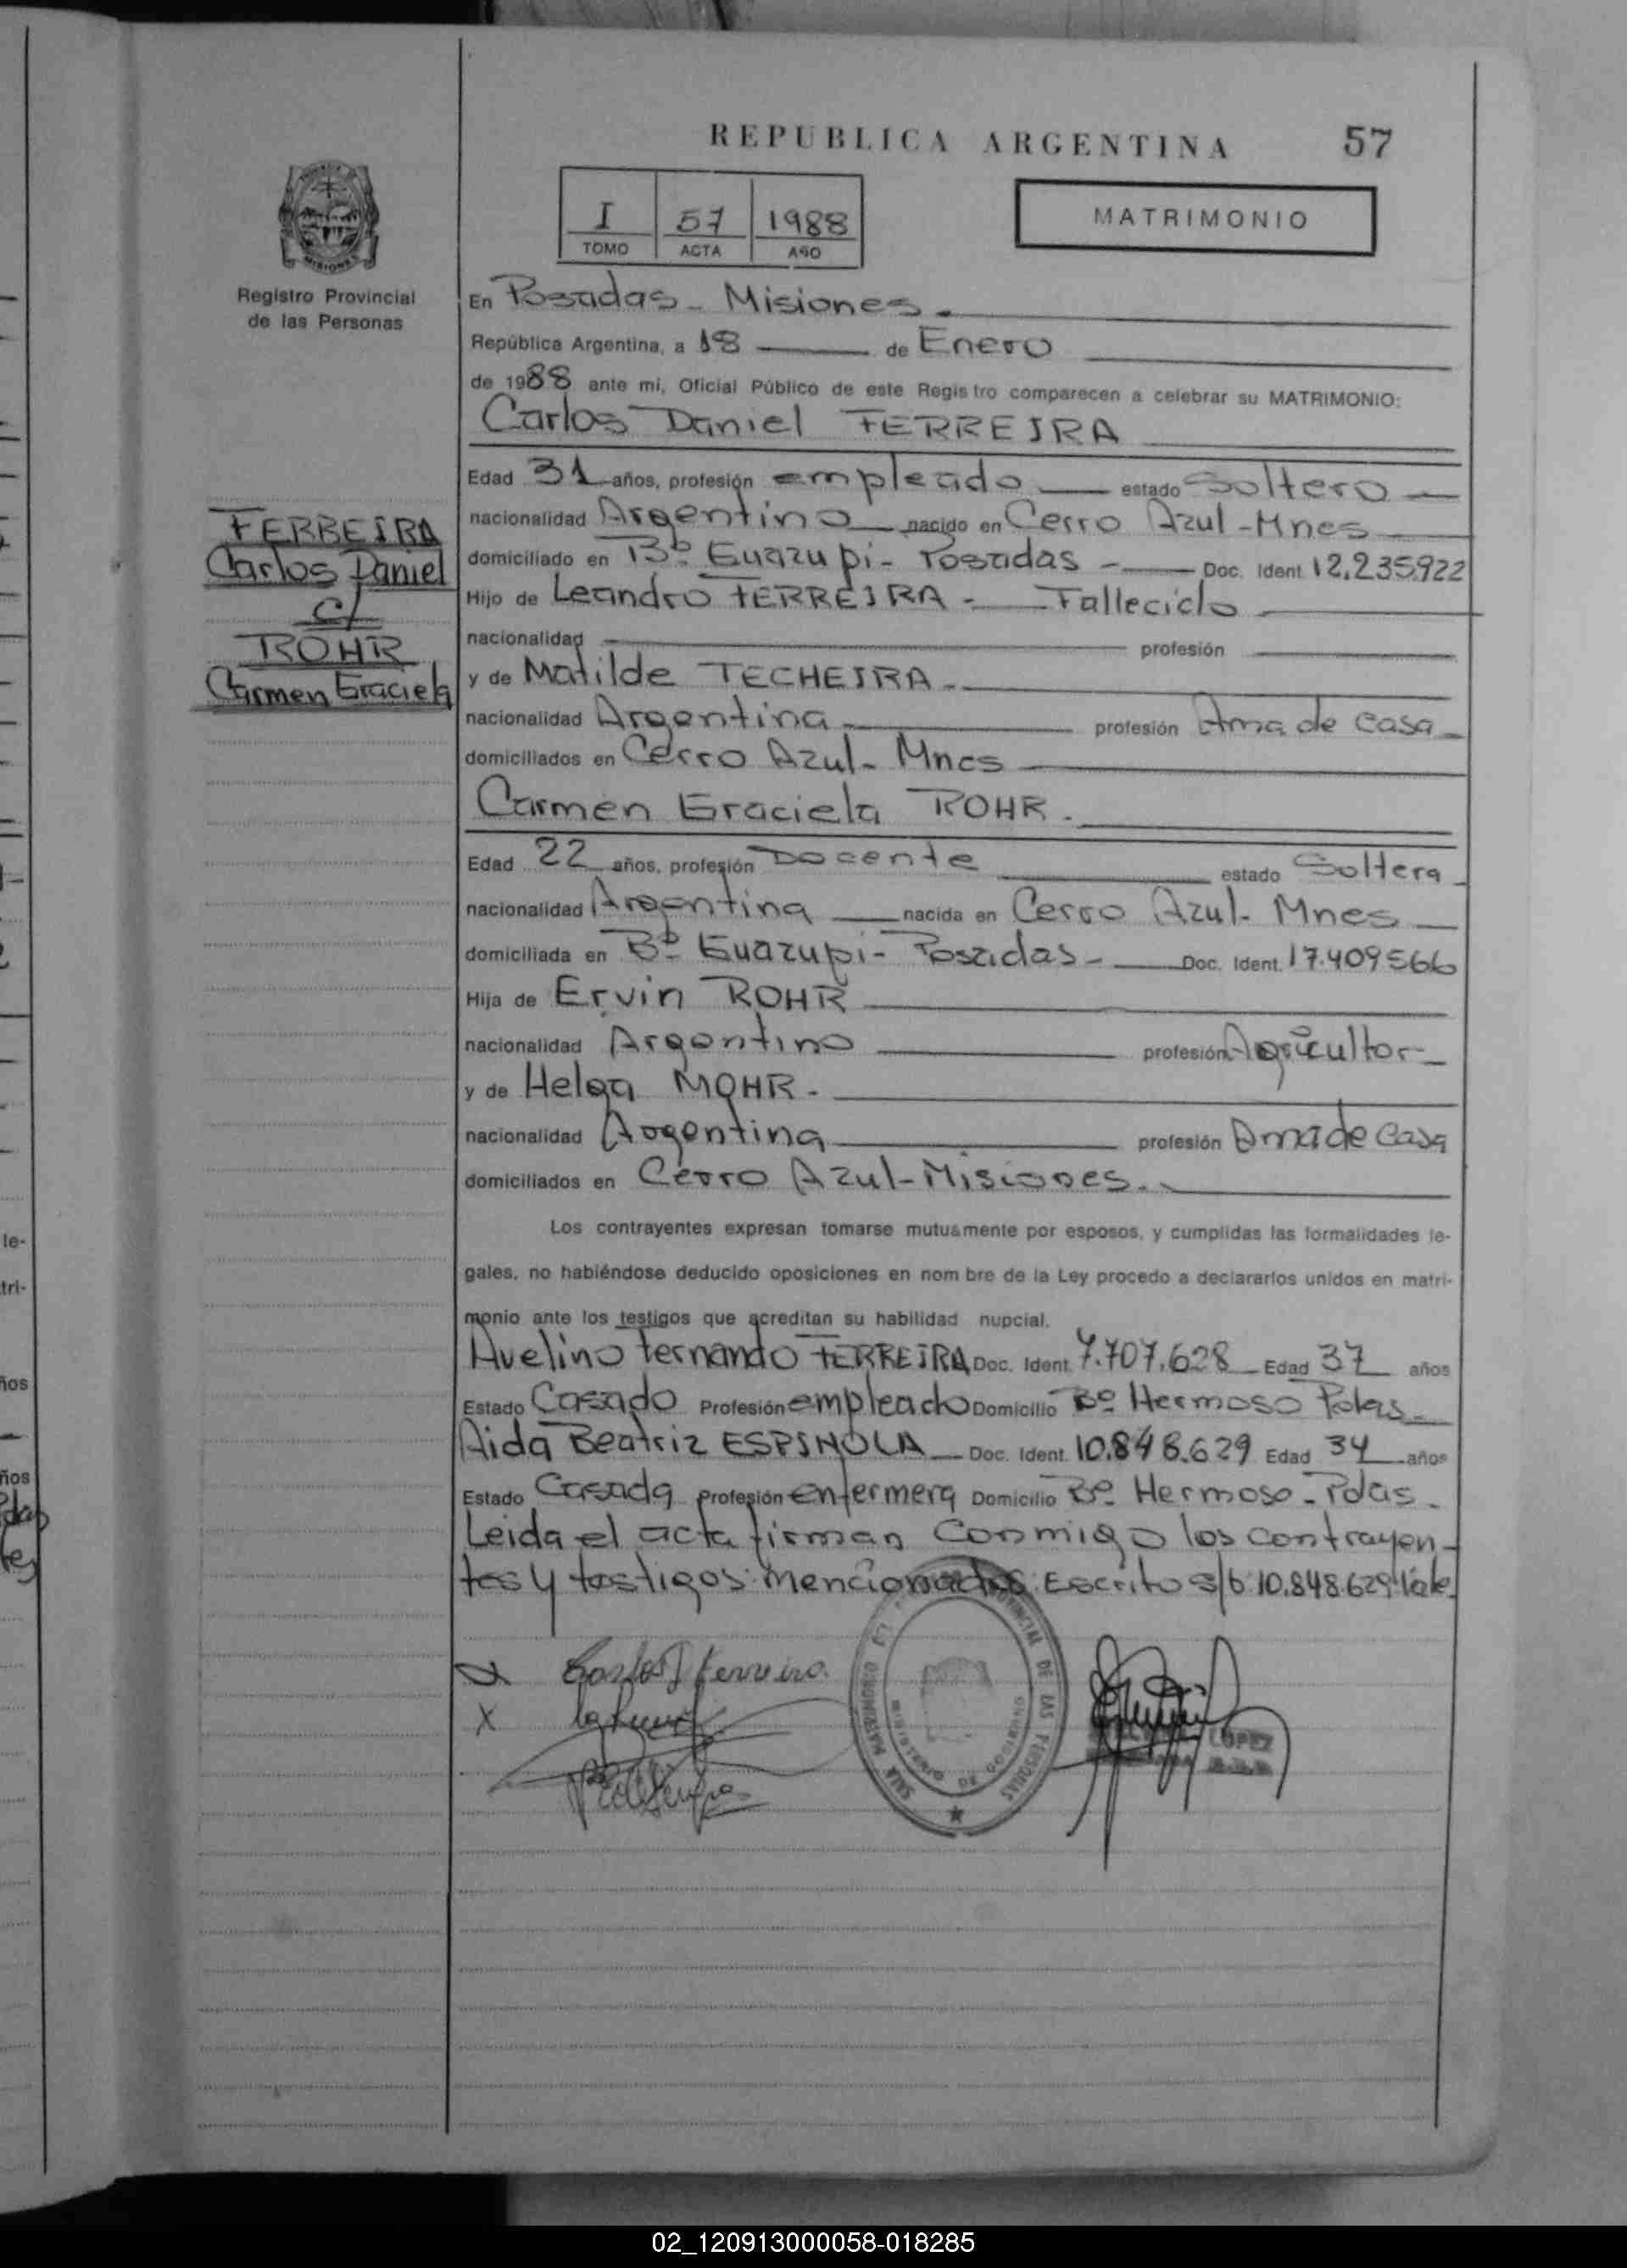 REPUBLICA ARGENTINA
57
I 57 1988
TOMO ACTA AÑO
MATRIMONIO
MISIONES
Registro Provincial
de las Personas
En Posadas - Misiones.
República Argentina, a 18 de Enero
de 1988 ante mi, Oficial Público de este Registro comparecen a celebrar su MATRIMONIO:
Carlos Daniel FERREIRA
Edad 31 años, profesión empleado estado Soltero
nacionalidad Argentino nacido en Cerro Azul - Mnes
domiciliado en Bº Guazupi - Posadas - Doc. Ident. 12.235.922
Hijo de Leandro FERREIRA - Fallecido
nacionalidad profesión
y de Matilde TECHEIRA -
nacionalidad Argentina profesión Ama de casa
domiciliados en Cerro Azul - Mnes
FERREIRA
Carlos Daniel
c/
ROHR
Carmen Graciela
Carmen Graciela ROHR.
Edad 22 años, profesión Docente estado Soltera
nacionalidad Argentina nacida en Cerro Azul - Mnes
domiciliada en Bº Guazupi - Posadas - Doc. Ident. 17.409566
Hija de Ervin ROHR
nacionalidad Argentino profesión Agricultor
y de Helga MOHR -
nacionalidad Argentina profesión Ama de Casa
domiciliados en Cerro Azul - Misiones.
Los contrayentes expresan tomarse mutuamente por esposos, y cumplidas las formalidades le-
gales, no habiéndose deducido oposiciones en nombre de la Ley procedo a declararlos unidos en matri-
monio ante los testigos que acreditan su habilidad nupcial.
Avelino Fernando FERREIRA Doc. Ident. 7.707.628 Edad 37 años
Estado Casado Profesión empleado Domicilio Bº Hermoso Pdas -
Aida Beatriz ESPINOLA Doc. Ident. 10.848.629 Edad 34 años
Estado Casada Profesión enfermera Domicilio Bº Hermoso - Pdas -
Leida el acta firman conmigo los contrayen-
tes y testigos mencionados. Escrito s/b 10.848.629 Vale
Carlos D Ferreira
X
LOPEZ
02_120913000058-018285